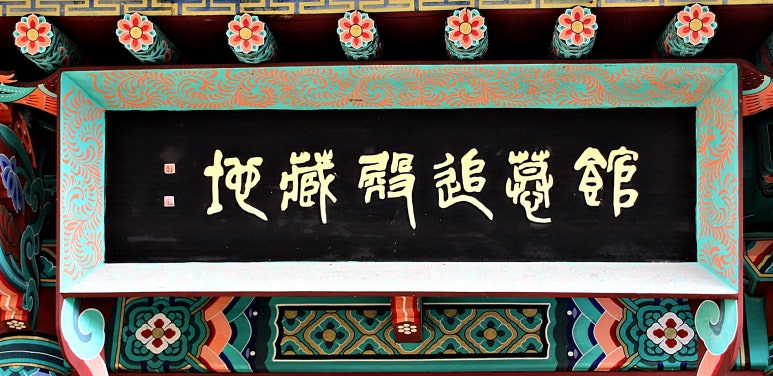 地藏殿追慕館